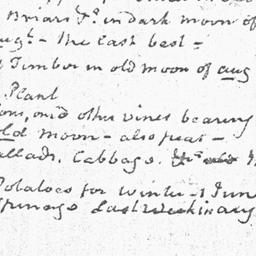 Briars &c. in dark moon of
Augt. - the last best -
Timber in old moon of Aug
Plant
ons, and other vines bearing
old moon - also peas -
allads. Cabbage.
Potatoes for winter - 1 June
Spinage Last week in Aug